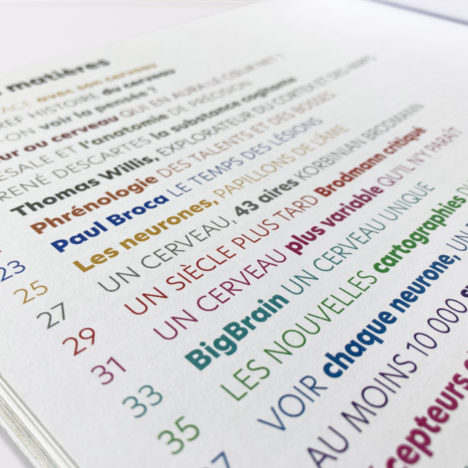 matières
FACE avec son cerveau
BREF HISTOIRE du cerveau
ON voir la pensée ?
ur ou cerveau QUI EN AURA LE CŒUR NET ?
VÉSALE ET l'anatomie DE PRÉCISION
RENÉ DESCARTES la substance cogitante
Thomas Willis, EXPLORATEUR DU CORTEX ET DES NERFS
Phrénologie DES TALENTS ET DES BOSSES
23 Paul Broca LE TEMPS DES LÉSIONS
25 Les neurones, PAPILLONS DE L'ÂME
27 UN CERVEAU, 43 aires KORBINIAN BRODMANN
29 UN SIÈCLE PLUS TARD Brodmann critiqué
31 UN CERVEAU plus variable QU'IL N'Y PARAÎT
33 BigBrain UN CERVEAU UNIQUE
35 LES NOUVELLES cartographies
37 VOIR chaque neurone, UN
AU MOINS 10 000
cepteurs